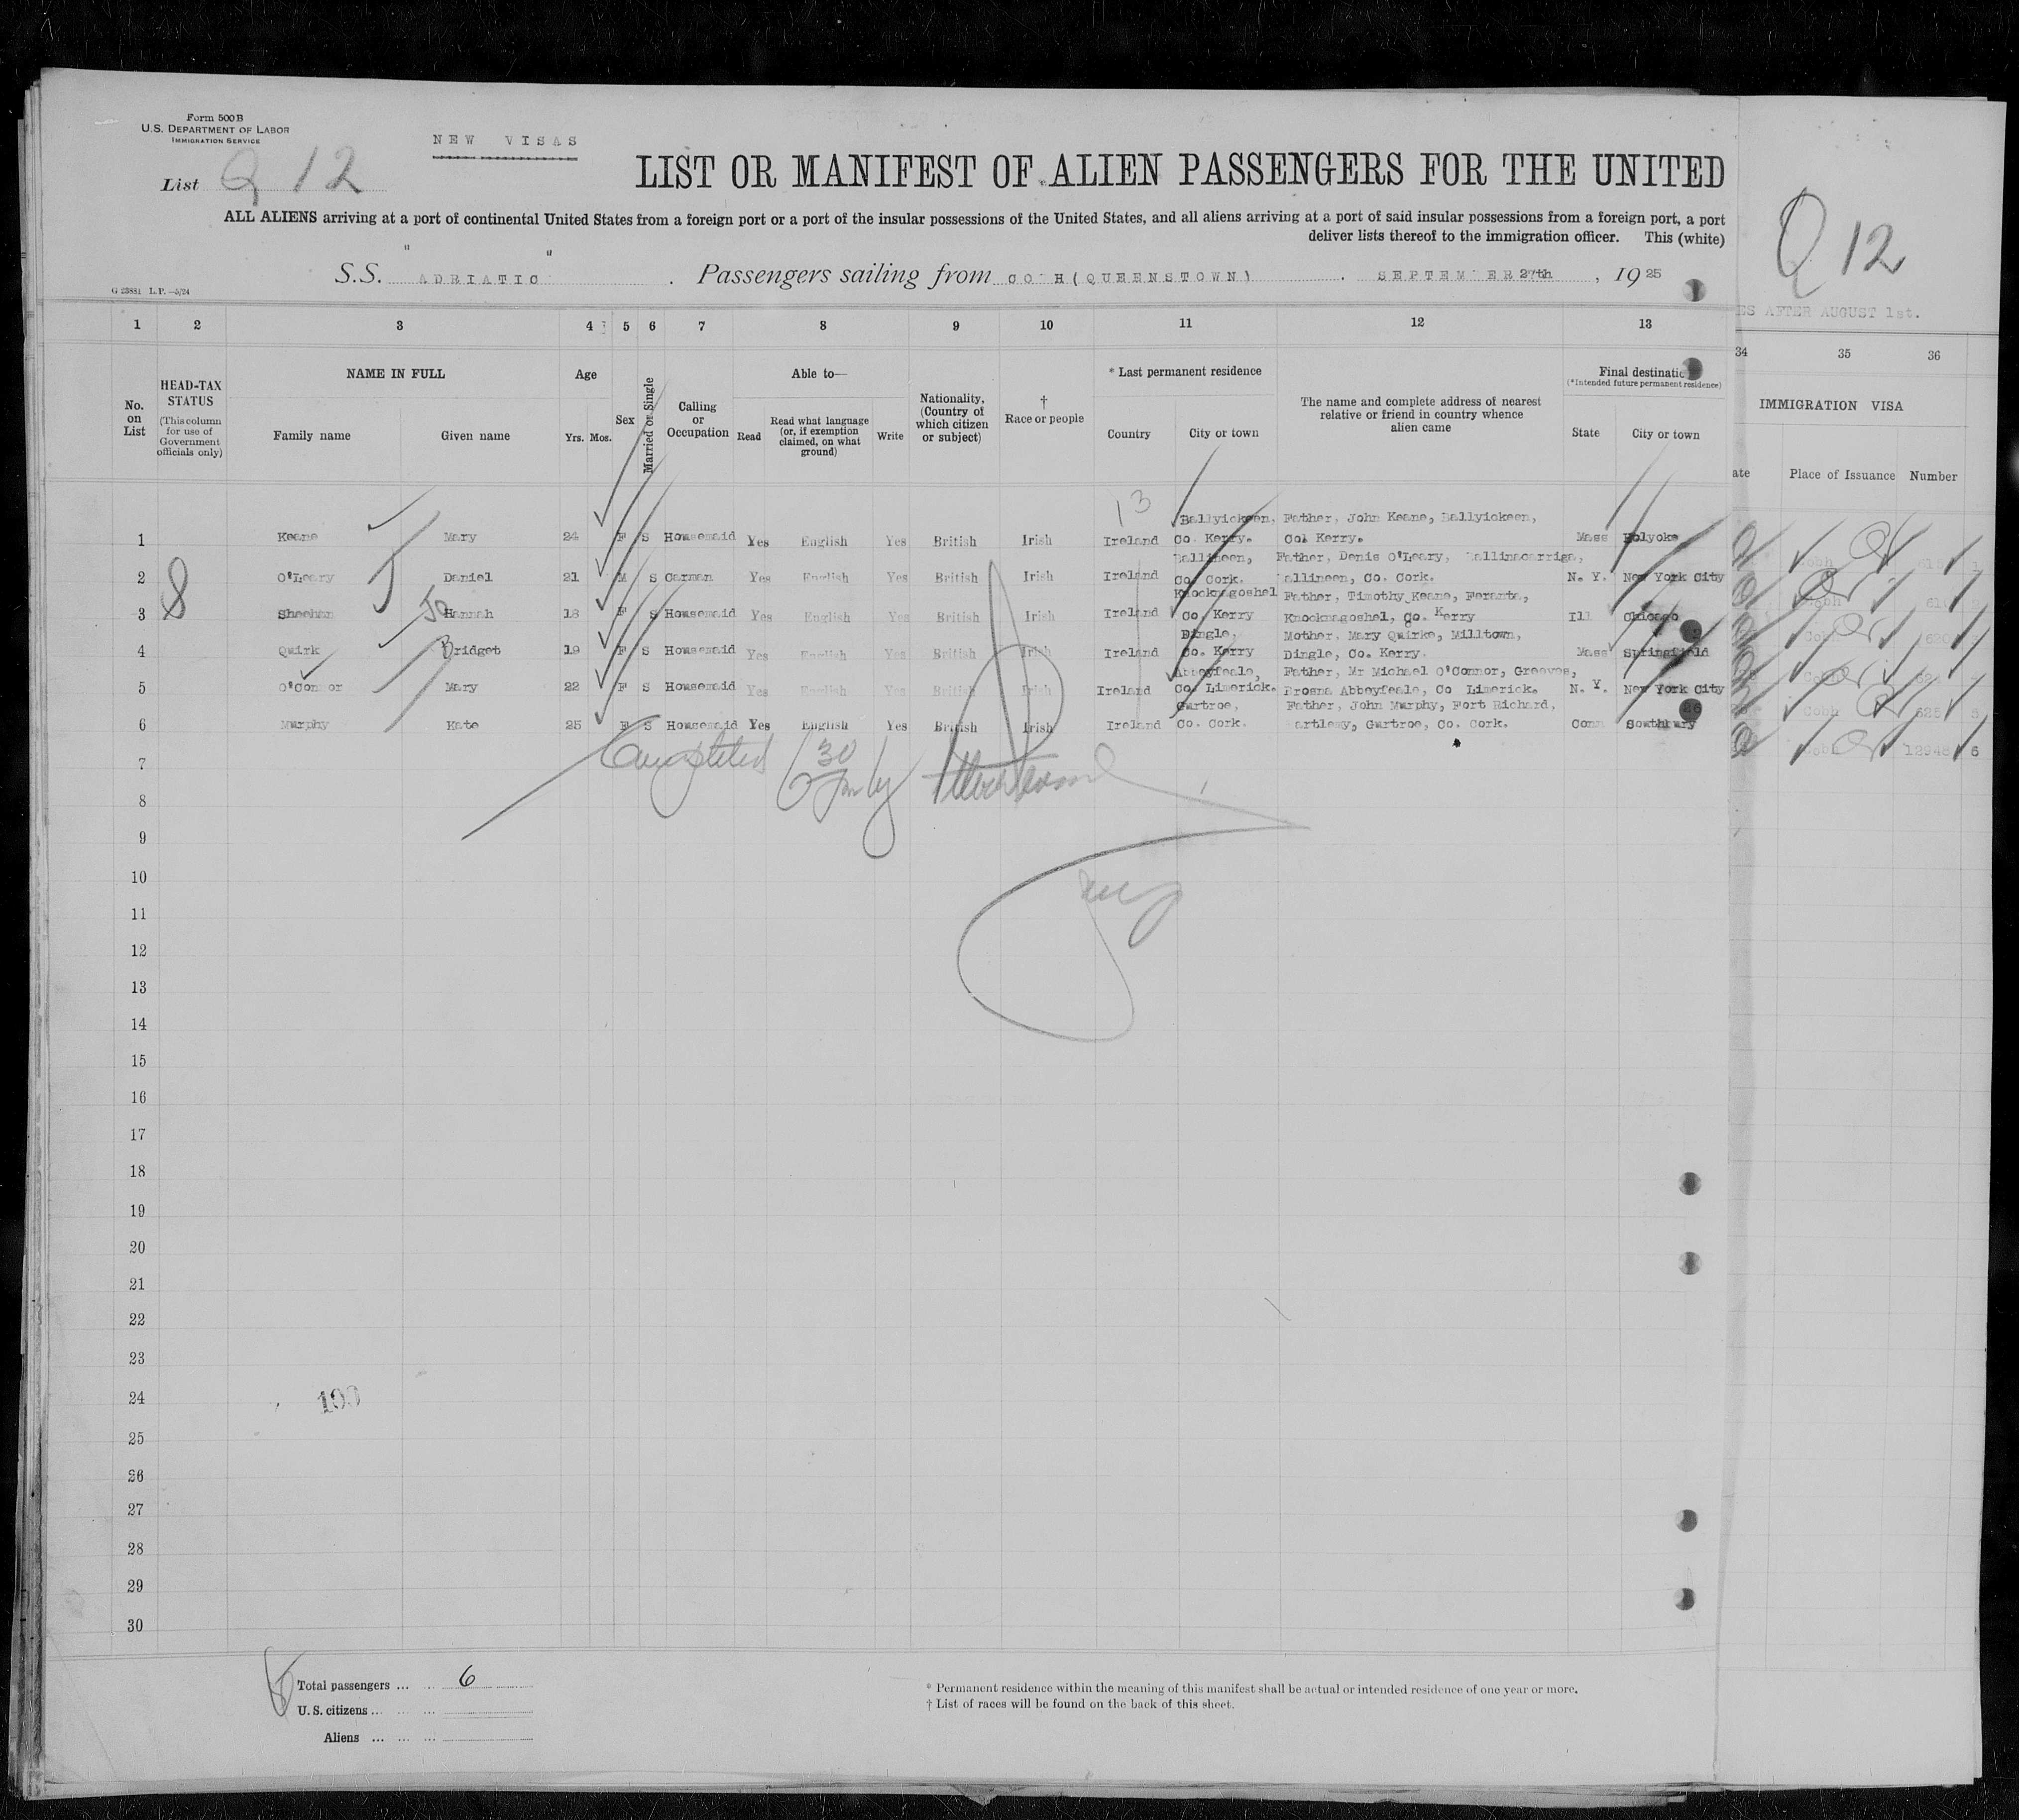 Form 500 B
U.S. DEPARTMENT OF LABOR
IMMIGRATION SERVICE
NEW VISAS
List Q 12
LIST OR MANIFEST OF ALIEN PASSENGERS FOR THE UNITED
ALL ALIENS arriving at a port of continental United States from a foreign port or a port of the insular possessions of the United States, and all aliens arriving at a port of said insular possessions from a foreign port, a port
deliver lists thereof to the immigration officer. This (white)
S.S. "ADRIATIC" . Passengers sailing from CO H (QUEENSTOWN) . SEPTEM ER 27th , 19 25
G 23881 L.P.—5/24
Q 12
ES AFTER AUGUST 1st.
1 2 3 4 5 6 7 8 9 10 11 12 13
34 35 36
No. on List
HEAD-TAX STATUS
(This column for use of Government officials only)
NAME IN FULL
Family name Given name
Age
Yrs. Mos.
Sex
Married or Single
Calling or Occupation
Able to—
Read
Read what language (or, if exemption claimed, on what ground)
Write
Nationality, (Country of which citizen or subject)
† Race or people
* Last permanent residence
Country City or town
The name and complete address of nearest relative or friend in country whence alien came
Final destinatio
(*Intended future permanent residence)
State City or town
IMMIGRATION VISA
ate Place of Issuance Number
13
Ballyickeen, Father, John Keane, Ballyickeen,
1 Keane Mary 24 F S Housemaid Yes English Yes British Irish Ireland Co. Kerry. Co. Kerry. Mass Holyoke
Ballineen, Father, Denis O'Leary, Ballinacarriga,
2 O'Leary Daniel 21 M S Carman Yes English Yes British Irish Ireland Co. Cork. allineen, Co. Cork. N. Y. New York City
Knocknagoshel Father, Timothy Keane, Feranta,
3 Sheehan Hannah 18 F S Housemaid Yes English Yes British Irish Ireland Co. Kerry Knocknagoshel, Co. Kerry Ill Chicago
Dingle, Mother, Mary Quirke, Milltown,
4 Quirk Bridget 19 F S Housemaid Yes English Yes British Irish Ireland Co. Kerry Dingle, Co. Kerry. Mass Springfield
Abbeyfeale, Father, Mr Michael O'Connor, Greaves,
5 O'Connor Mary 22 F S Housemaid Yes English Yes British Irish Ireland Co. Limerick. Brosna Abbeyfeale, Co Limerick. N. Y. New York City
Gurtroe, Father, John Murphy, Fort Richard,
6 Murphy Kate 25 F S Housemaid Yes English Yes British Irish Ireland Co. Cork. artlemy, Gurtroe, Co. Cork. Conn Southbury
Cobh 12948 6
7 Completed 30
8
9
10
11
12
13
14
15
16
17
18
19
20
21
22
23
24 100
25
26
27
28
29
30
Total passengers ... ... 6
U. S. citizens ... ... ...
Aliens ... ... ...
* Permanent residence within the meaning of this manifest shall be actual or intended residence of one year or more.
† List of races will be found on the back of this sheet.